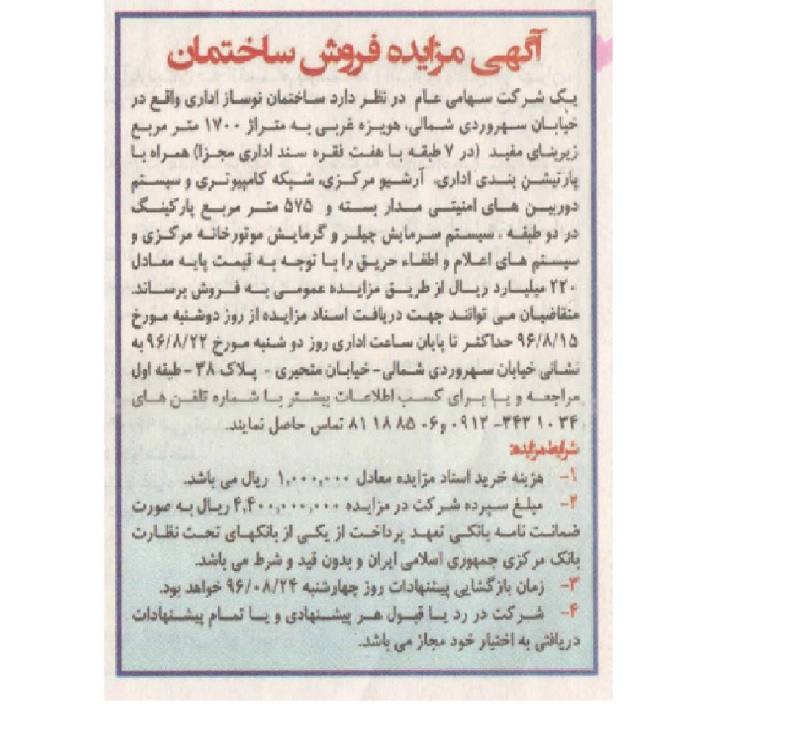 آگهی مزایده فروش ساختمان
یک شرکت سهامی عام در نظر دارد ساختمان نوساز اداری واقع در
خیابان سهروردی شمالی، هویزه غربی به متراژ ۱۷۰۰ متر مربع
زیربنای مفید (در ۷ طبقه با هفت فقره سند اداری مجزا) همراه با
پارتیشن بندی اداری، آرشیو مرکزی، شبکه کامپیوتری و سیستم
دوربین های امنیتی مدار بسته و ۵۷۵ متر مربع پارکینگ
در دو طبقه ، سیستم سرمایش چیلر و گرمایش موتورخانه مرکزی و
سیستم های اعلام و اطفاء حریق را با توجه به قیمت پایه معادل
۲۲۰ میلیارد ریال از طریق مزایده عمومی به فروش برساند.
متقاضیان می توانند جهت دریافت اسناد مزایده از روز دوشنبه مورخ
۹۶/۸/۱۵ حداکثر تا پایان ساعت اداری روز دو شنبه مورخ ۹۶/۸/۲۲ به
نشانی خیابان سهروردی شمالی- خیابان متحیری - پلاک ۳۸ - طبقه اول
مراجعه و یا برای کسب اطلاعات بیشتر با شماره تلفن های
۳۴ ۱۰ ۳۴۳- ۰۹۱۲ و ۶- ۸۵ ۱۸ ۸۱ تماس حاصل نمایند.
شرایط مزایده:
۱- هزینه خرید اسناد مزایده معادل ۱,۰۰۰,۰۰۰ ریال می باشد.
۲- مبلغ سپرده شرکت در مزایده ۴,۴۰۰,۰۰۰,۰۰۰ ریال به صورت
ضمانت نامه بانکی تعهد پرداخت از یکی از بانکهای تحت نظارت
بانک مرکزی جمهوری اسلامی ایران و بدون قید و شرط می باشد.
۳- زمان بازگشایی پیشنهادات روز چهارشنبه ۹۶/۰۸/۲۴ خواهد بود.
۴- شرکت در رد یا قبول هر پیشنهادی و یا تمام پیشنهادات
دریافتی به اختیار خود مجاز می باشد.